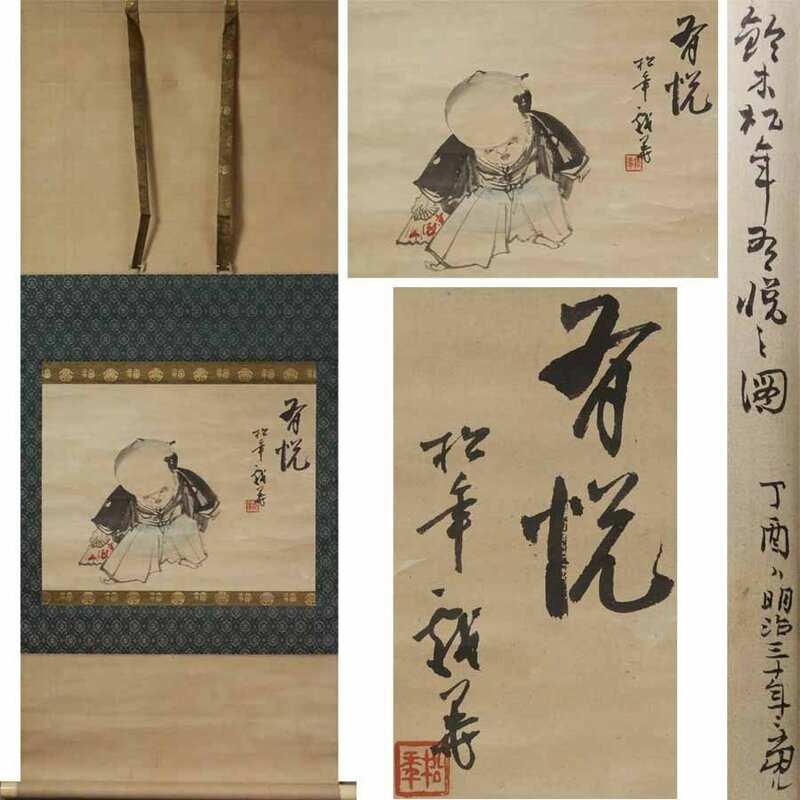 有悦
松年戯筆
有悦
松年戯筆
有悦
松年戯筆
松年
鈴木松年有悦之圖
丁酉ハ明治三十年